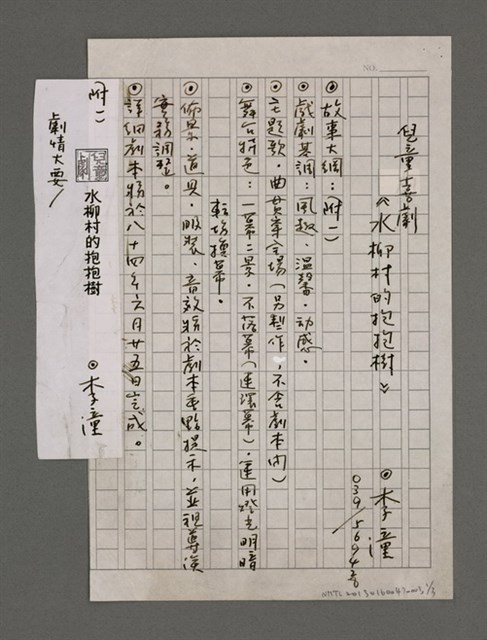 NO.
兒童喜劇
《水柳村的抱抱樹》
◎李潼
◎故事大綱：附一
◎戲劇基調：風趣、溫馨、动感。
◎主題歌、曲貫穿全場（另製作，不含劇本內）
◎舞台特色：一幕二景，不落幕（連環幕），運用燈光明暗
轉場換幕。
◎佈景、道具、服裝、音效將於劇本重點提示，並視導演
實務調整。
◎詳細劇本將於八十四年六月廿五日完成。
附一
劇情大要／
兒童劇
水柳村的抱抱樹
◎李潼